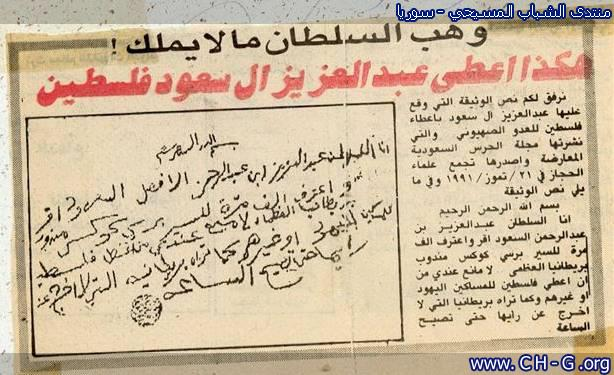 منتدى الشباب المسيحي - سوريا
وهب السلطان مالايملك !
هكذا اعطى عبدالعزيز ال سعود فلسطين
نرفق لكم نص الوثيقة التي وقع
عليها عبدالعزيز ال سعود باعطاء
فلسطين للعدو الصهيوني والتي
نشرتها مجلة الحرس السعودية
المعارضة واصدرها تجمع علماء
الحجاز في ٢١/تموز/١٩٩١ وفي ما
يلي نص الوثيقة
بسم الله الرحمن الرحيم
انا السلطان عبدالعزيز بن
عبدالرحمن السعود اقر واعترف الف
مرة للسير برسي كوكس مندوب
بريطانيا العظمى لا مانع عندي من
ان اعطي فلسطين للمساكين اليهود
او غيرهم وكما تراه بريطانيا التي لا
اخرج عن رايها حتى تصيح
الساعة
بسم الله الرحمن الرحيم
انا السلطان عبدالعزيز ابن عبدالرحمن الفيصل السعود اقر
و اعترف الف مرة للسير برسي كوكس مندوب
بريطانيا العظمى لا مانع عندي من
اليهود او غيرهم كما تراه بريطانيا التي لا اخرج عن
رايها حتى تصيح الساعة
www.CH-G.org